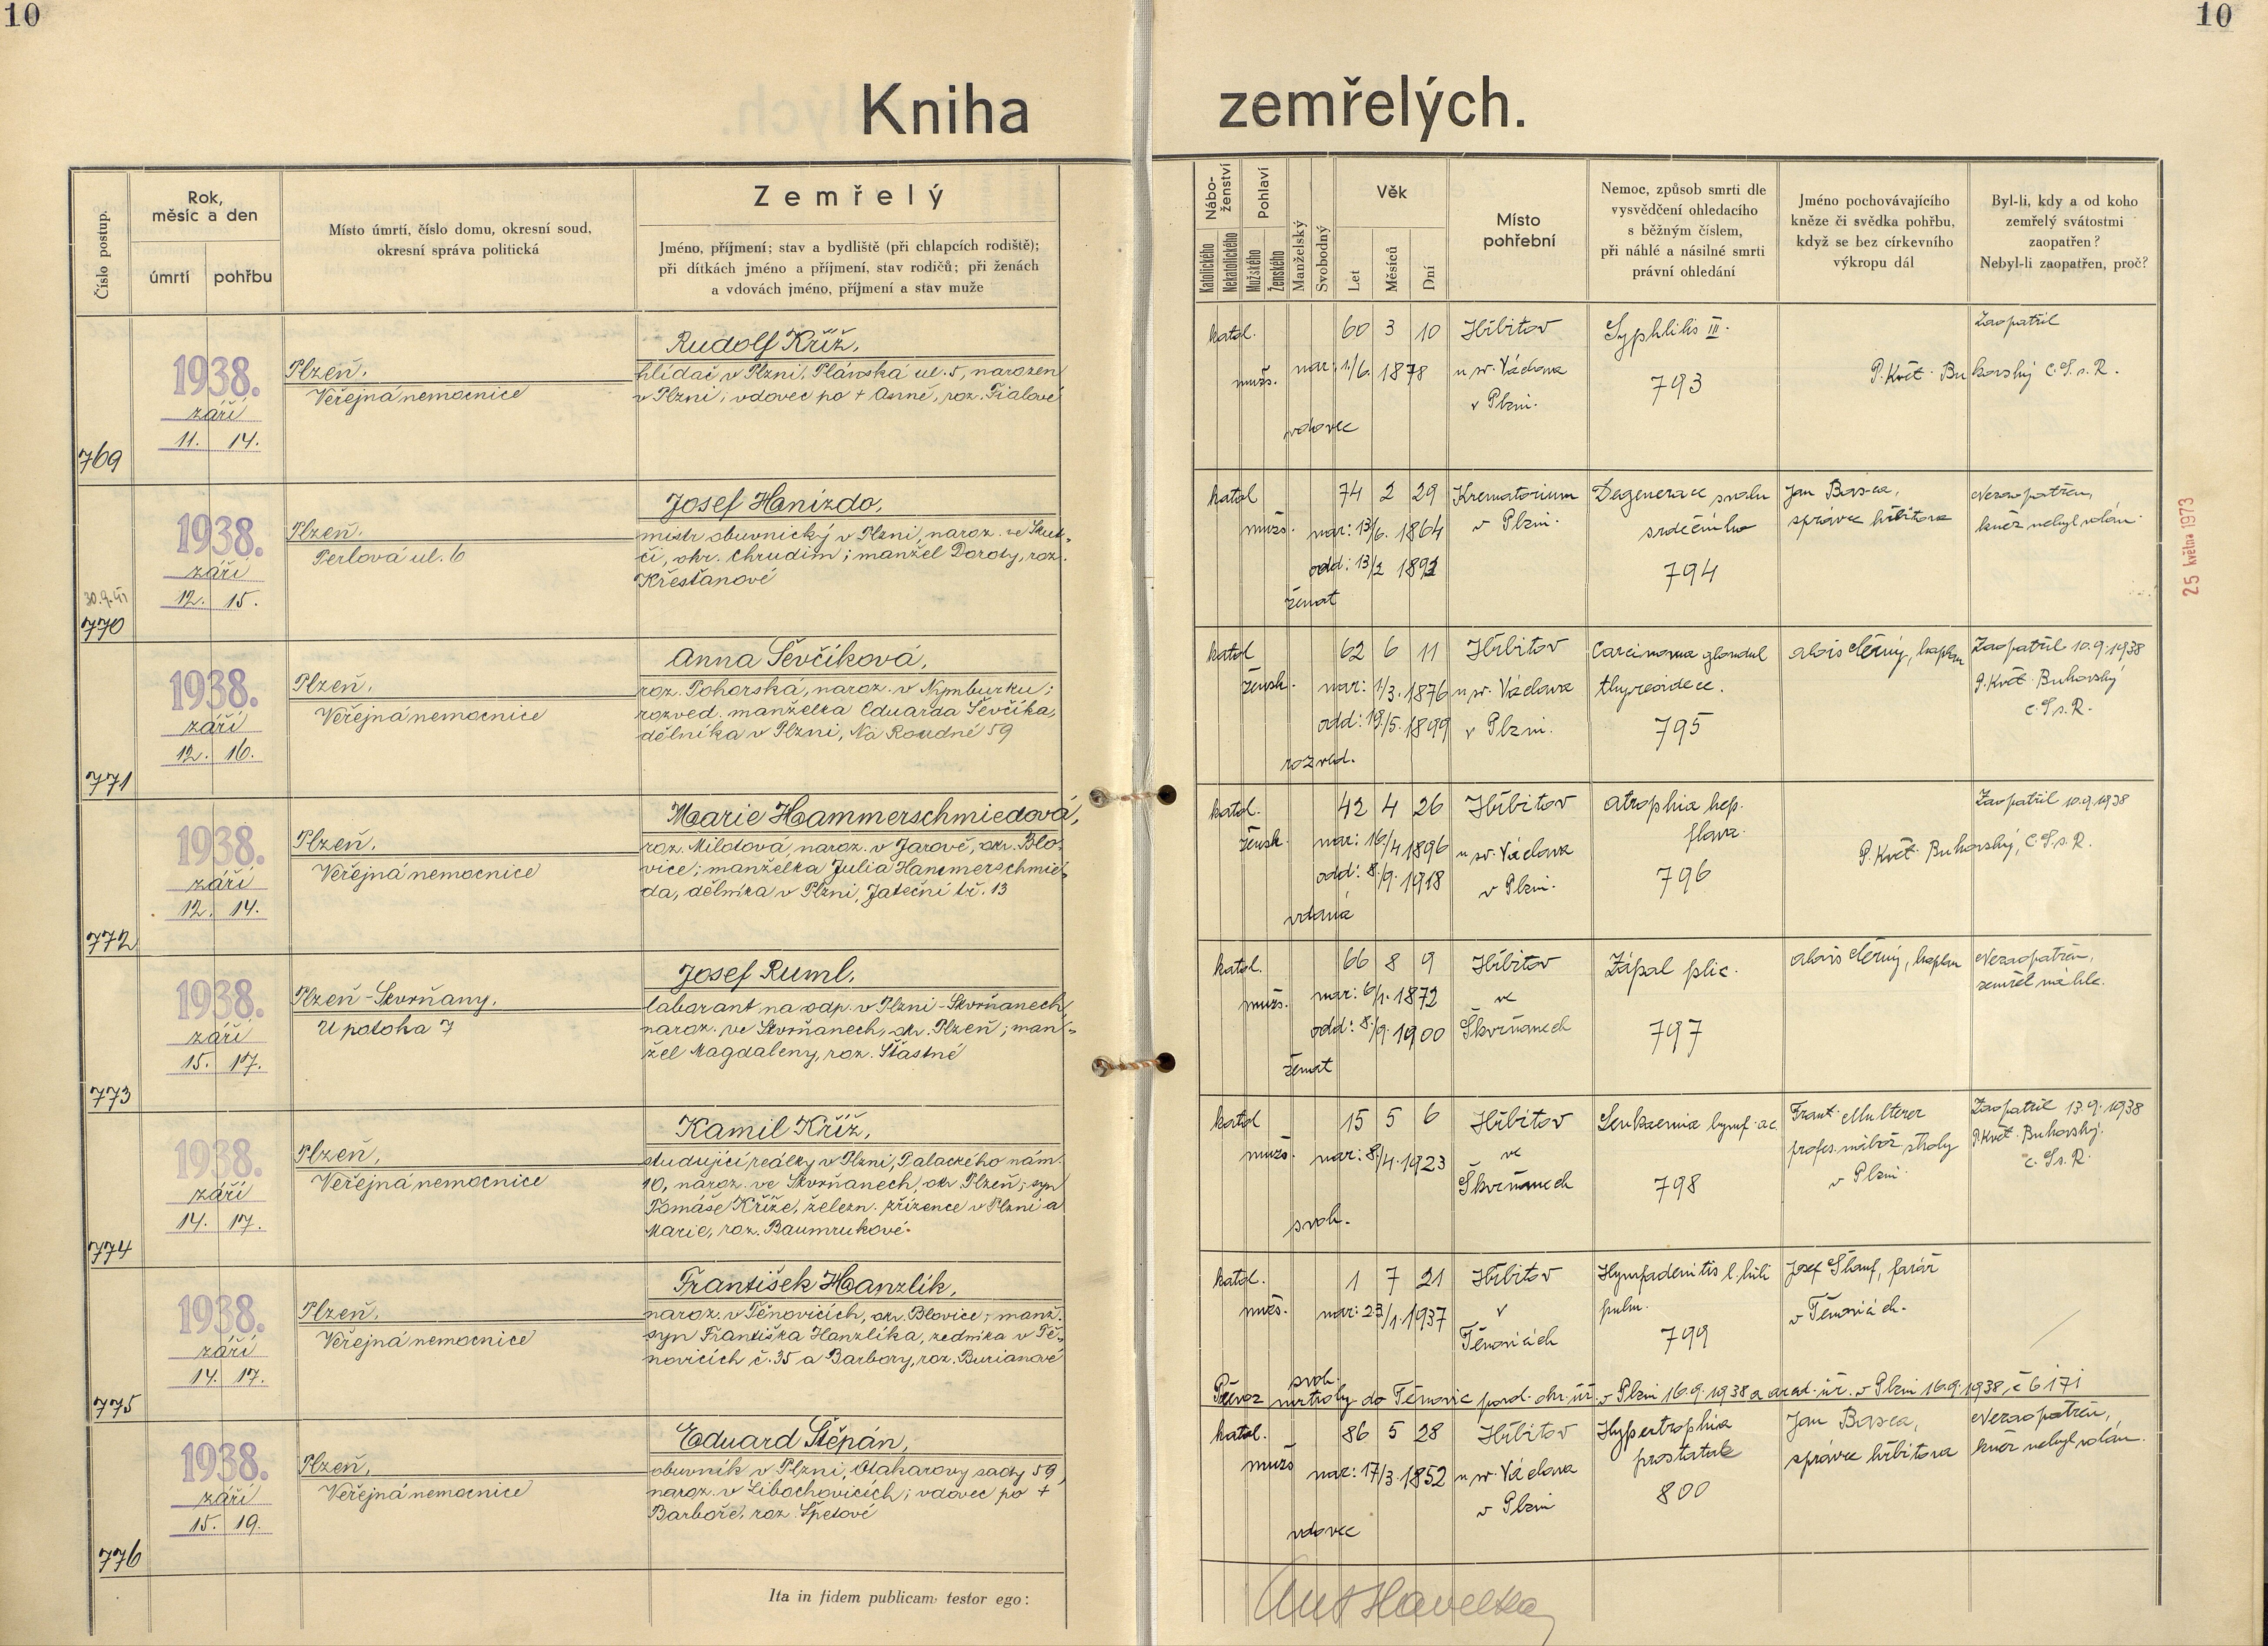 10
10
Kniha
zemřelých.
Číslo postup.
Rok,
měsíc a den
úmrtí
pohřbu
Místo úmrtí, číslo domu, okresní soud,
okresní správa politická
Zemřelý
Jméno, příjmení; stav a bydliště (při chlapcích rodiště);
při dítkách jméno a příjmení, stav rodičů; při ženách
a vdovách jméno, příjmení a stav muže
Nábo-
ženství
Katolického
Nekatolického
Pohlaví
Mužského
Ženského
Manželský
Svobodný
Věk
Let
Měsíců
Dní
Místo
pohřební
Nemoc, způsob smrti dle
vysvědčení ohledacího
s běžným číslem,
při náhlé a násilné smrti
právní ohledání
Jméno pochovávajícího
kněze či svědka pohřbu,
když se bez církevního
výkropu dál
Byl-li, kdy a od koho
zemřelý svátostmi
zaopatřen?
Nebyl-li zaopatřen, proč?
769
1938.
září
11. 14.
Plzeň.
Veřejná nemocnice
Rudolf Kříž,
hlídač v Plzni, Plánská ul. 5, narozen
v Plzni; vdovec po + Anně, roz. Fialové
katol.
mužs.
vdovec
60 3 10
nar: 1/6. 1878
Hřbitov
u sv. Václava
v Plzni.
Syphlilis III.
793
Zaopatřil
P. Květ. Bukovský C.S.s.R.
30.9.41
770
1938.
září
12. 15.
Plzeň.
Perlová ul. 6
Josef Hanizdo,
mistr obuvnický v Plzni, naroz. ve Skut-
či, okr. Chrudim; manžel Doroty, roz.
Křesťanové
katol
mužs.
ženat
74 2 29
nar: 13/6. 1864
odd: 13/2 1892
Krematorium
v Plzni.
Degenerace svalu
srdečního
794
Jan Basca,
správce hřbitova
Nezaopatřen,
kněz nebyl volán.
25 května 1973
771
1938.
září
12. 16.
Plzeň.
Veřejná nemocnice
Anna Ševčíková,
roz. Pohorská, naroz. v Nymburku;
rozved. manželka Eduarda Ševčíka,
dělníka v Plzni, Na Roudné 59
katol
žensk.
rozved.
62 6 11
nar: 1/3. 1876
odd: 19/5. 1899
Hřbitov
u sv. Václava
v Plzni.
Carcinoma glandul
thyreoideae.
795
Alois Černý, kaplan
Zaopatřil 10.9.1938
P. Květ. Bukovský
C.S.s.R.
772
1938.
září
12. 14.
Plzeň.
Veřejná nemocnice
Marie Hammerschmiedová,
roz. Mildtová, naroz. v Jarově, okr. Blo-
vice; manželka Julia Hammerschmie-
da, dělníka v Plzni, Jateční tř. 13
katol.
žensk.
vdaná
42 4 26
nar: 16/4 1896
odd: 8/9. 1918
Hřbitov
u sv. Václava
v Plzni.
Atrophia hep.
flava.
796
Zaopatřil 10.9.1938
P. Květ. Bukovský, C.S.s.R.
773
1938.
září
15. 17.
Plzeň-Skvrňany,
U potoka 7
Josef Ruml,
laborant na odp. v Plzni-Skvrňanech,
naroz. ve Skvrňanech, okr. Plzeň; man-
žel Magdaleny, roz. Šťastné
katol.
mužs.
ženat
66 8 9
nar: 6/1. 1872
odd: 8/9. 1900
Hřbitov
ve
Škvrňanech
Zápal plic.
797
Alois Černý, kaplan
Nezaopatřen,
zemřel náhle.
774
1938.
září
14. 17.
Plzeň,
Veřejná nemocnice
Kamil Kříž,
studující reálky v Plzni, Palackého nám.
10, naroz. ve Skvrňanech, okr Plzeň; syn
Tomáše Kříže, železn. zřízence v Plzni a
Marie, roz. Baumrukové.
katol
mužs.
svob.
15 5 6
nar: 8/4. 1923
Hřbitov
ve
Škvrňanech
Leukaemia lymf. ac
798
Frant. Multerer
profes. nábož. školy
v Plzni
Zaopatřil 13.9.1938
P. Květ. Bukovský.
C.S.s.R.
775
1938.
září
14. 17.
Plzeň.
Veřejná nemocnice
František Hanzlík,
naroz. v Těnovicích, okr. Blovice; manž.
syn Františka Hanzlíka, zedníka v Tě-
novicích č. 35 a Barbory, roz. Burianové
katol.
mužs.
svob.
1 7 21
nar: 23/1. 1937
Hřbitov
v
Těnovicích
Hympadenitis l. hili
pulm.
799
Josef Šlauf, farář
v Těnovicích.
Převoz mrtvoly do Těnovic povol. okr. úř. v Plzni 16.9.1938 a arcid. úř. v Plzni 16.9.1938, č 6171
776
1938.
září
15. 19.
Plzeň,
Veřejná nemocnice
Eduard Štěpán,
obuvník v Plzni, Otakarovy sady 59,
naroz. v Libochovicích; vdovec po +
Barboře, roz. Špetové
katol.
mužs
vdovec
86 5 28
nar: 17/3. 1852
Hřbitov
u sv. Václava
v Plzni
Hypertrophia
prostatae
800
Jan Basca,
správce hřbitova
Nezaopatřen,
kněz nebyl volán.
Ita in fidem publicam testor ego:
Ant Havelka